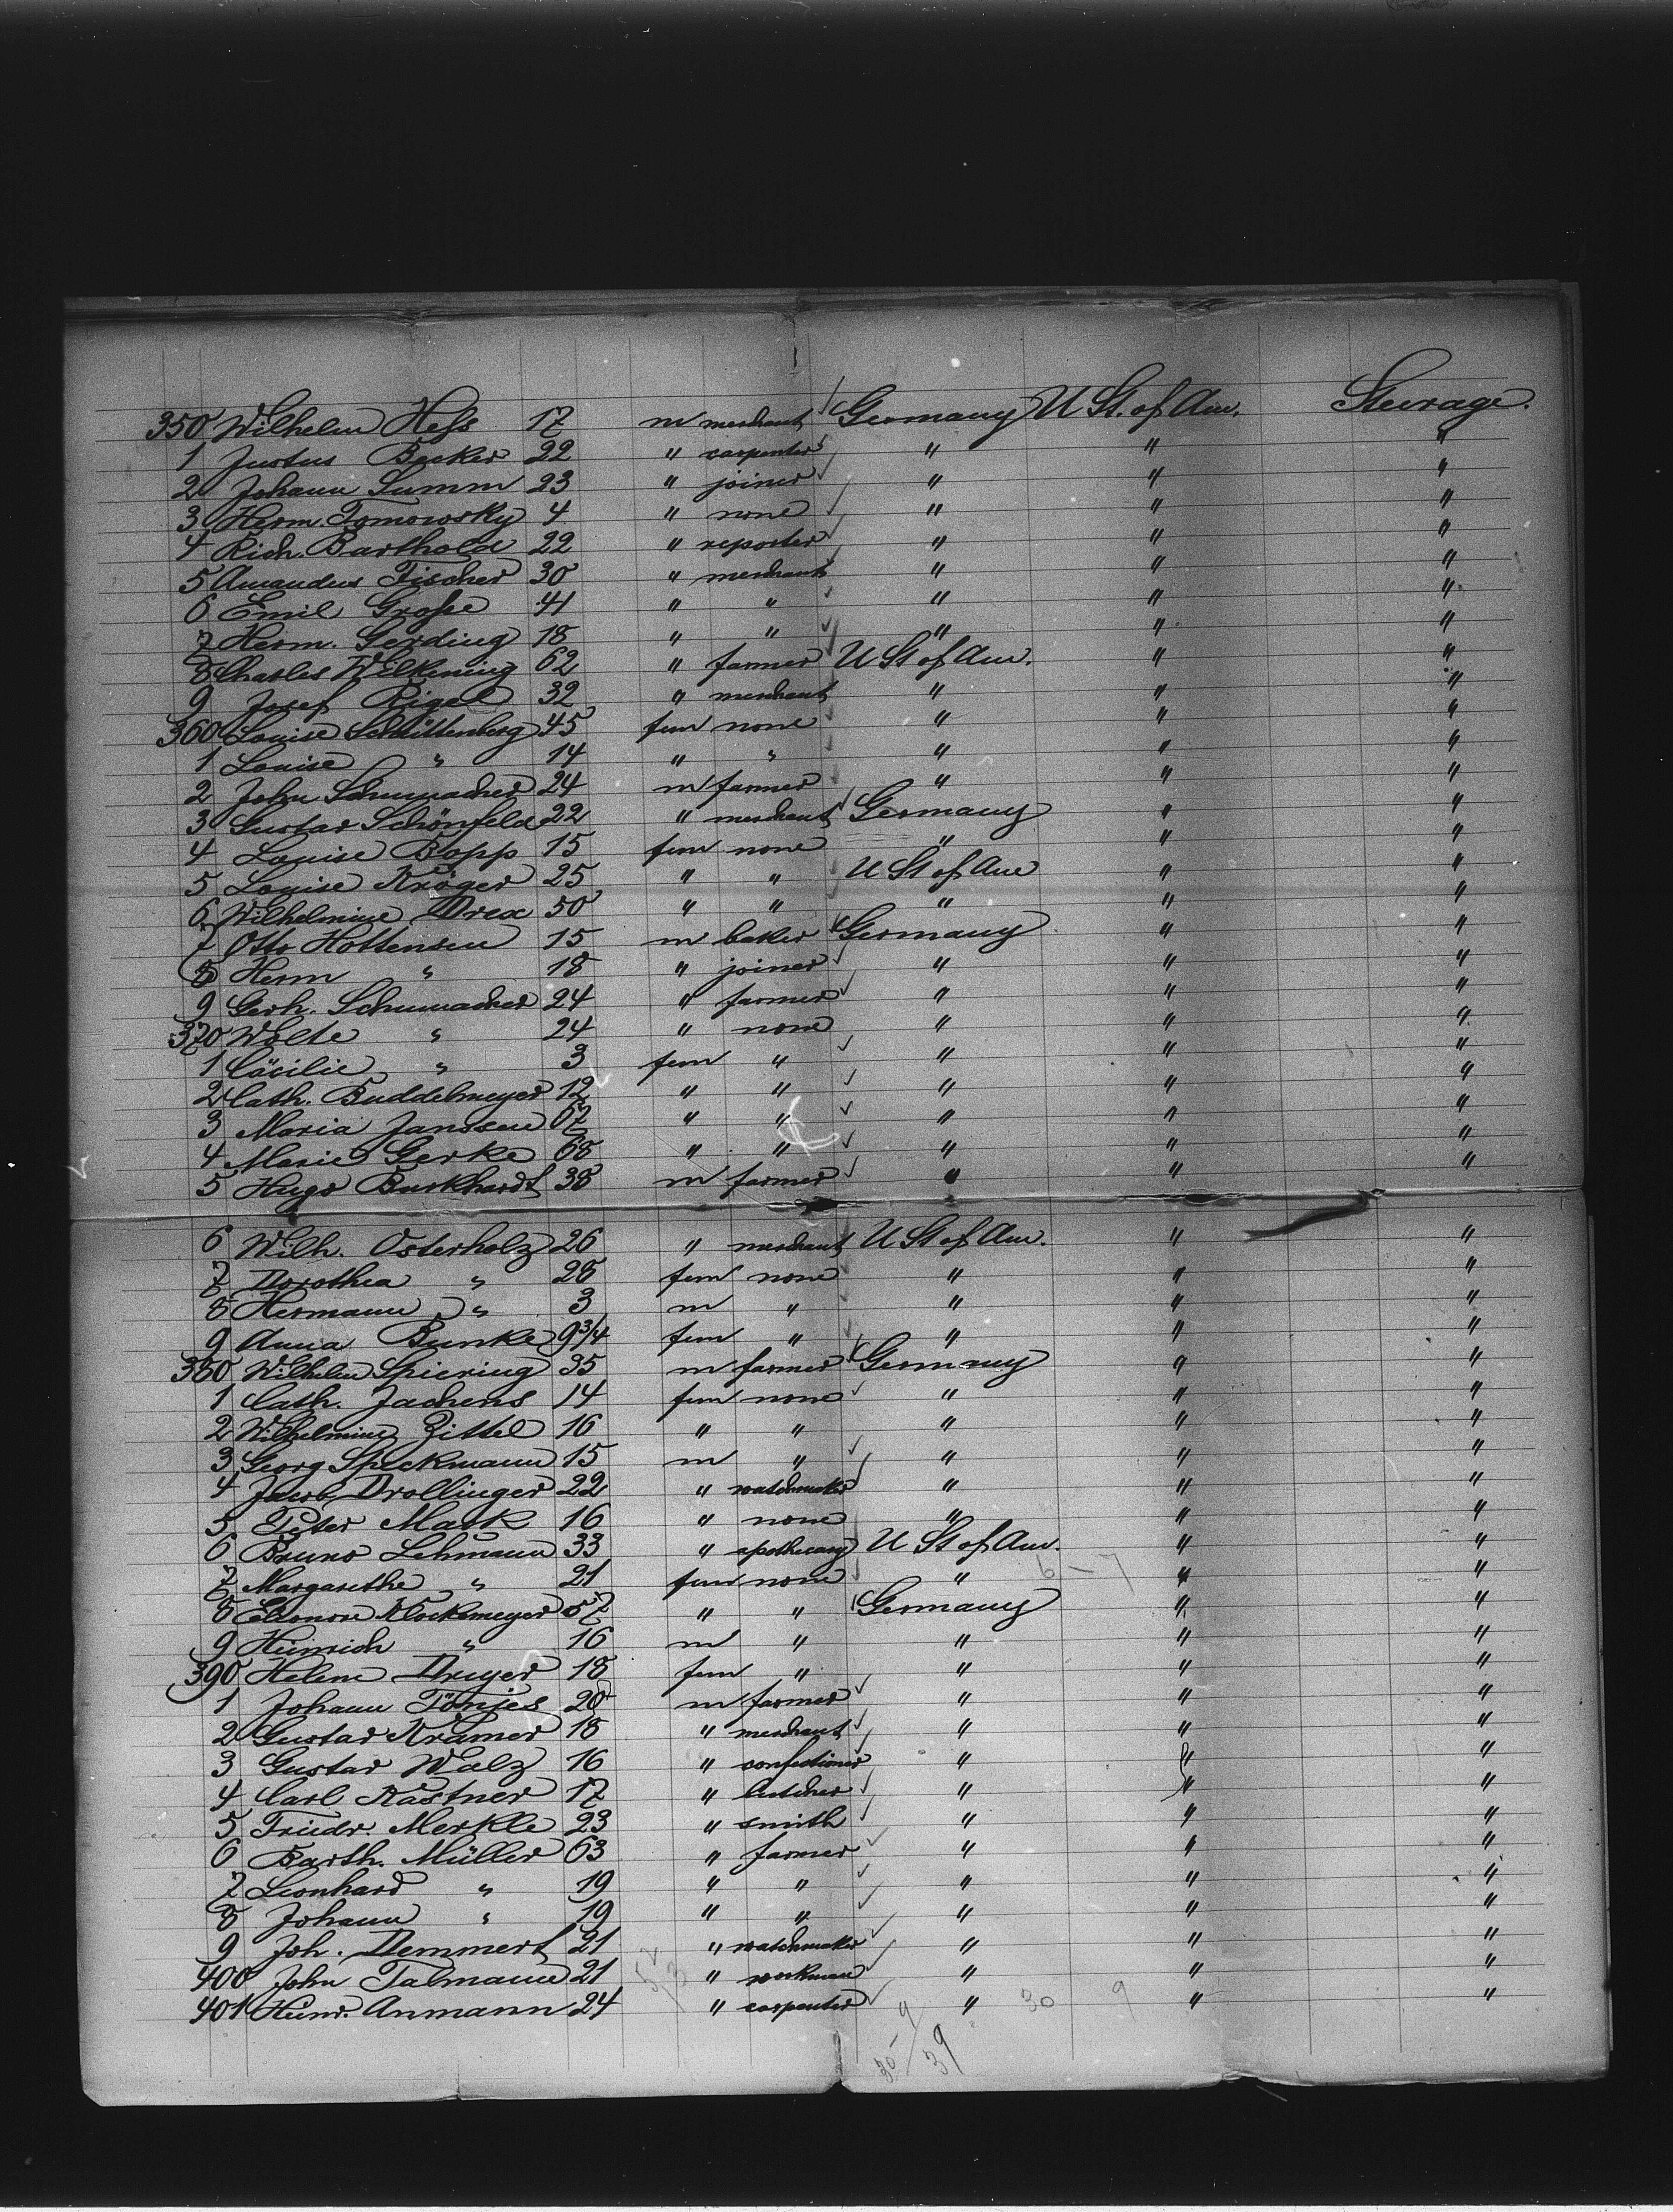 350 Wilhelm Heſs 17 m merchant Germany U St. of Am. Steerage.
1 Justus Becker 22 " carpenter " " "
2 Johann Summ 23 " joiner " " "
3 Herm. Tomowsky 4 " none " " "
4 Rich. Barthold 22 " reporter " " "
5 Amandus Fischer 30 " merchant " " "
6 Emil Groſse 41 " " " " "
7 Herm. Gerding 18 " " " " "
8 Charles Wilkening 62 " farmer U St of Am. " "
9 Josef Rigel 32 " merchant " " "
360 Louise Schüttenberg 45 fem none " " "
1 Louise " 14 " " " " "
2 John Schumacher 24 m farmer " " "
3 Gustav Schönfeld 22 " merchant Germany " "
4 Louise Bopp 15 fem none " " "
5 Louise Kröger 25 " " U St of Am " "
6 Wilhelmine Drex 50 " " " " "
7 Otto Hottensen 15 m baker Germany " "
8 Herm " 18 " joiner " " "
9 Gerh. Schumacher 24 " farmer " " "
370 Wolte " 24 " none " " "
1 Cäcilie " 3 fem " " " "
2 Cath. Buddelmeyer 12 " " " " "
3 Maria Janssen 67 " " " " "
4 Marie Gerke 68 " " " " "
5 Hugo Burkhardt 38 m farmer " " "
6 Wilh. Osterholz 26 " merchant U St of Am. " "
7 Dorothea " 28 fem none " " "
8 Hermann " 3 m " " " "
9 Anna Bunke 9 3/4 fem " " " "
380 Wilhelm Spiering 35 m farmer Germany " "
1 Cath. Jachens 14 fem none " " "
2 Wilhelmine Zittel 16 " " " " "
3 Georg Speckmann 15 m " " " "
4 Jacob Drollinger 22 " watchmaker " " "
5 Peter Mack 16 " none " " "
6 Bruno Lehmann 33 " apothecary U St of Am. " "
7 Margarethe " 21 fem none " 6 - 7 " "
8 Eleonore Klockemeyer 57 " " Germany " "
9 Heinrich " 16 m " " " "
390 Helene Dreyer 18 fem " " " "
1 Johann Tönjes 20 m farmer " " "
2 Gustav Kramer 18 " merchant " " "
3 Gustav Walz 16 " confectioner " " "
4 Carl Kästner 17 " butcher " " "
5 Friedr. Merkle 23 " smith " " "
6 Barth. Müller 63 " farmer " " "
7 Leonhard " 19 " " " " "
8 Johann " 19 " " " " "
9 Joh. Demmert 21 " watchmaker " " "
400 John Talmann 21 " workman " " "
401 Heinr. Anmann 24 " carpenter " 30 9 " "
30 9/39